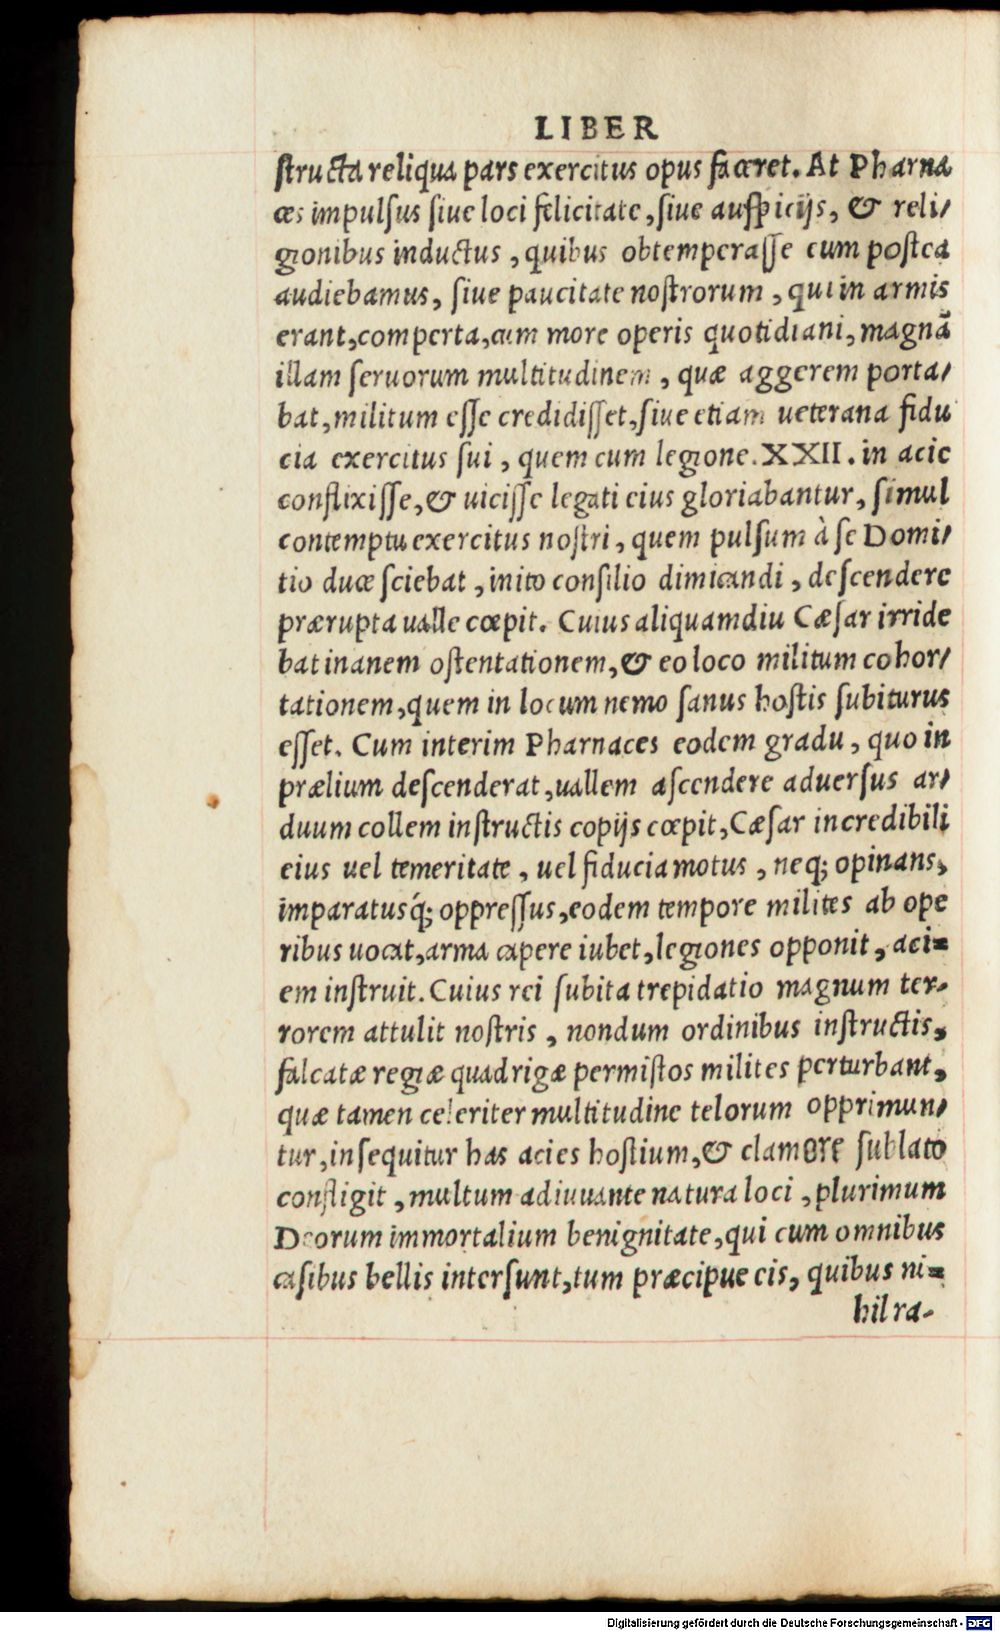 LIBER
structa reliqua pars exercitus opus faceret. At Pharna
ces impulsus siue loci felicitate, siue auspicijs, & reli/
gionibus inductus, quibus obtemperasse eum postea
audiebamus, siue paucitate nostrorum, qui in armis
erant, comperta, cum more operis quotidiani, magnã
illam seruorum multitudinem, quæ aggerem porta/
bat, militum esse credidisset, siue etiam ueterana fidu
cia exercitus sui, quem cum legione. XXII. in acie
conflixisse, & uicisse legati eius gloriabantur, simul
contemptu exercitus nostri, quem pulsum à se Domi/
tio duce sciebat, inito consilio dimicandi, descendere
prærupta ualle cœpit. Cuius aliquamdiu Cæsar irride
bat inanem ostentationem, & eo loco militum cohor/
tationem, quem in locum nemo sanus hostis subiturus
esset. Cum interim Pharnaces eodem gradu, quo in
prælium descenderat, uallem ascendere aduersus ar/
duum collem instructis copijs cœpit, Cæsar incredibili
eius uel temeritate, uel fiducia motus, neq; opinans,
imparatusq́; oppressus, eodem tempore milites ab ope
ribus uocat, arma capere iubet, legiones opponit, aci=
em instruit. Cuius rei subita trepidatio magnum ter-
rorem attulit nostris, nondum ordinibus instructis,
falcatæ regiæ quadrigæ permistos milites perturbant,
quæ tamen celeriter multitudine telorum opprimun/
tur, insequitur has acies hostium, & clamore sublato
confligit, multum adiuuante natura loci, plurimum
Deorum immortalium benignitate, qui cum omnibus
casibus bellis intersunt, tum præcipue eis, quibus ni=
hil ra-
Digitalisierung gefördert durch die Deutsche Forschungsgemeinschaft - DFG